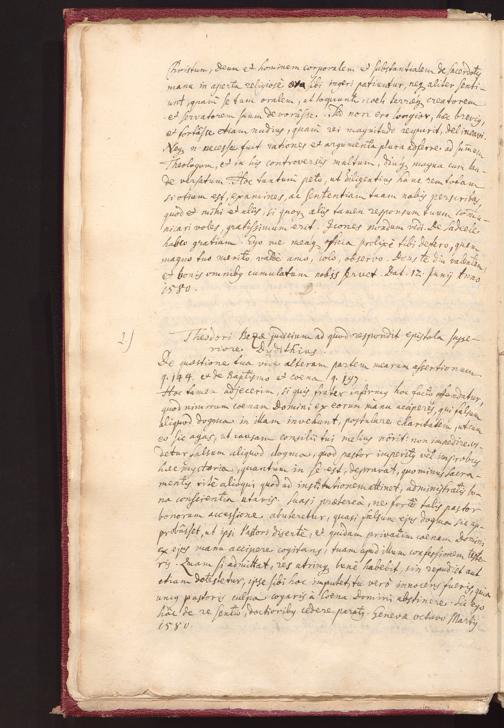 Christum, Deum et hominem corporalem et substantialem de sacerdotis
manu in aperta religiose ora sibi ingeri patiuntur, neq; aliter senti-
unt, quam se tum oralem, ac loquuntur, coeli terræq; creatorem
et servatorem suum
Sed non ero longior, hæc breviq;
et fortasse etiam nudius, quam rei magnitudo requirit, delineavi.
Neq; n. necesse fuit rationes et argumenta plura adferre ad summum
Theologum, et in his controversiis multum, diuq; magna cum lau-
de versatum. Hoc tantum peto, ut diligentius hanc rem totam
si otium est, examines, ac sententiam tuam nobis perscribas,
quod et mihi et aliis, si quoq; aliis tamen responsum tuum commu-
nicari voles, gratissimum erit. Icones nondum vidi. De Sadeele
habeo gratiam. Ego me meaq; officia prolixe tibi defero, quem
magno tuo merito valde amo, colo, observo. Deus te diu valentem
et bonis omnibq cumulatum nobis servet. Dat. 12. Junij Anno
1580.
2)
Theodori Bezæ judicium ad quod respondit epistola supe-
riore Dudithius.
De quæstione tua vide alteram partem mearum assertionum
q. 144. et de Baptismo et coena q. 197
Hoc tamen adjecerim, si quis frater infirmus hoc facto offendatur,
quod nimirum coenam Domini ex eorum manu acciperes, qui falsum
aliquod dogma in illam invehunt, postulare charitatem, ut cum
eo sic agas, ut causam consilii tui melius norit: non impedire
detur falsum aliquod dogma, quod pastor imperitus vel improbus
hæc mysteria, quantum in se est, depravat, quominus sacra-
mentis rite alioqui, quod ad institutionem attinet, administratis bo-
na conscientia utaris. Suasi præterea, ne forte talis pastor
bonorum accessione abuteretur, quasi falsum ejus dogma sic ap-
probasset, ut ipsi Pastori diserte, et quidem privatim coenam Domini
ex ejus manu accipere cogitans, tuam apud illum confessionem teste-
ris. Quam si admittat, res utrinq; bene habebit, sin repudiet aut
etiam detestetur, ipse sibi hoc imputet, tu vero innocens fueris, quia
unius pastoris culpa cogaris à Coena Domini abstinere. Sic ego
hac de re sentio, doctioribq cedere paratq. Geneva octavo Martij
1580.